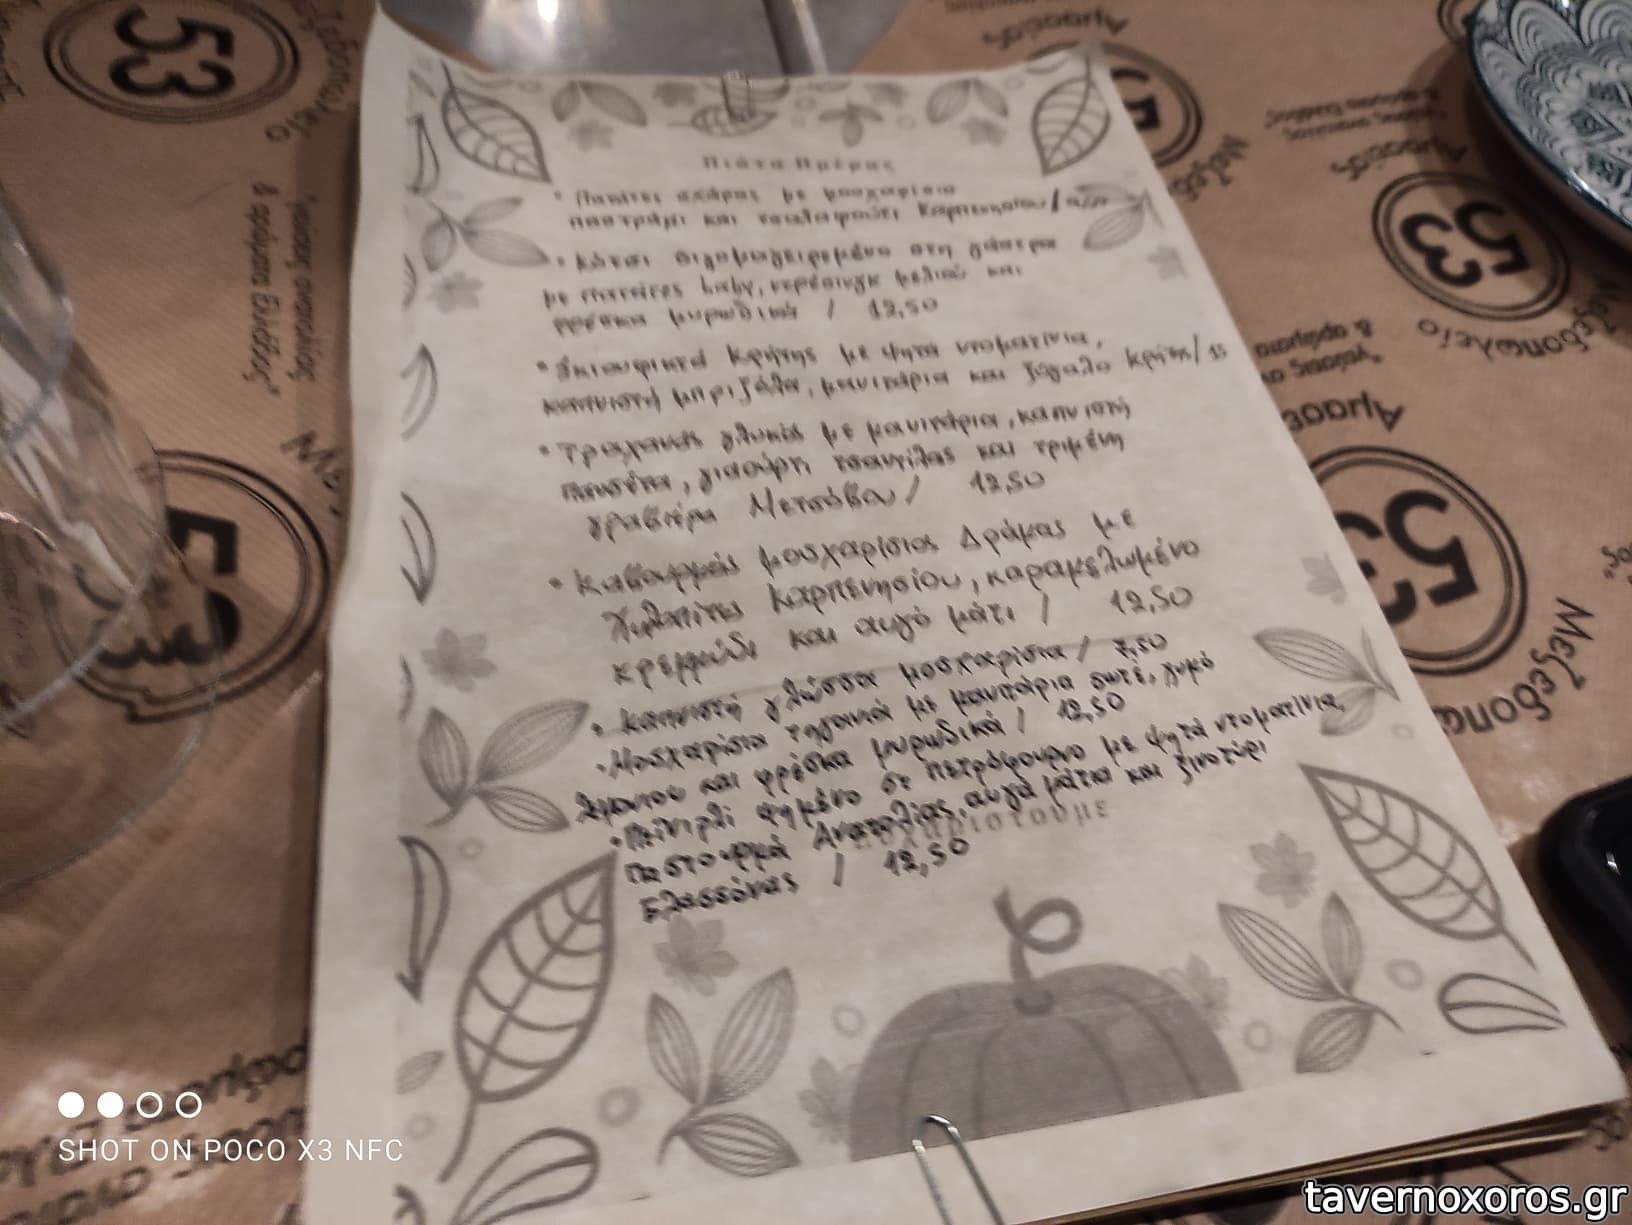 Πιάτα Ημέρας
• σχάρας με μοσχαρίσιο
παστράμι και Καρπενησίου/
• Κότσι σιγομαγειρεμένο στη γάστρα
με πατάτες baby, ντρέσινγκ μελιού και
φρέσκα μυρωδικά / 12,50
• Σκιουφικτά Κρήτης με ψητά ντοματίνια,
καπνιστή μπριζόλα, μανιτάρια και ξύγαλο Κρήτης/13
• Τραχανάς γλυκός με μανιτάρια, καπνιστή
πανσέτα, γιαούρτι τσαντίλας και τριμένη
γραβιέρα Μετσόβου / 12,50
• Καβουρμάς μοσχαρίσιος Δράμας με
Χυλοπίτες Καρπενησίου, καραμελωμένο
κρεμμύδι και αυγό μάτι / 12,50
• Καπνιστή γλώσσα μοσχαρίσια / 7,50
• Μοσχαρίσια τηγανιά με μανιτάρια σωτέ, χυμό
λεμονιού και φρέσκα μυρωδικά / 12,50
• Πεϊνιρλί ψημένο σε πετρόφουρνο με ψητά ντοματίνια,
Παστουρμά Ανατολίας, αυγά μάτια και ξινοτύρι
Ελασσόνας / 12,50
53
Μεζεδοπωλείο
Αμασείς
"γεύσεις ανατολίας
& αρώματα Ελλάδος"
SHOT ON POCO X3 NFC
tavernoxoros.gr